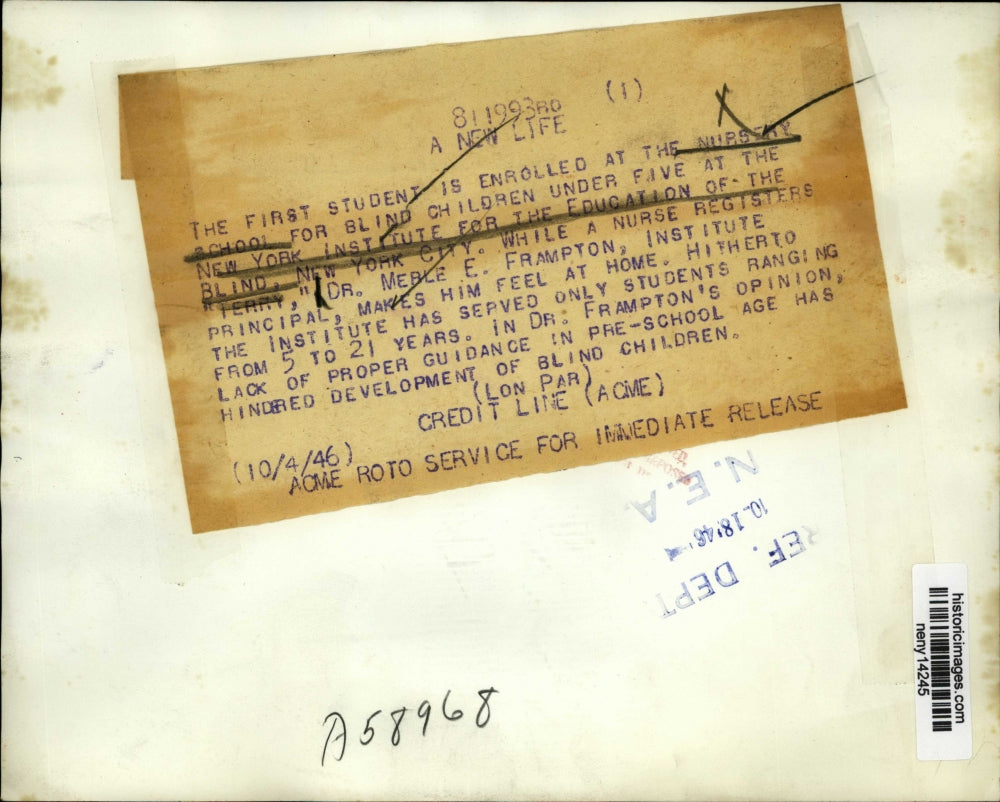 811993RO (1)
A NEW LIFE
THE FIRST STUDENT IS ENROLLED AT THE NURSERY
SCHOOL FOR BLIND CHILDREN UNDER FIVE AT THE
NEW YORK INSTITUTE FOR THE EDUCATION OF THE
BLIND, NEW YORK CITY. WHILE A NURSE REGISTERS
"TERRY," DR. MERLE E. FRAMPTON, INSTITUTE
PRINCIPAL, MAKES HIM FEEL AT HOME. HITHERTO
THE INSTITUTE HAS SERVED ONLY STUDENTS RANGING
FROM 5 TO 21 YEARS. IN DR. FRAMPTON'S OPINION,
LACK OF PROPER GUIDANCE IN PRE-SCHOOL AGE HAS
HINDERED DEVELOPMENT OF BLIND CHILDREN.
(LON PAR)
CREDIT LINE (ACME)
(10/4/46)
ACME ROTO SERVICE FOR IMMEDIATE RELEASE
N.E.A.
10-18'46
REF. DEPT.
A58968
historicimages.com
neny14245